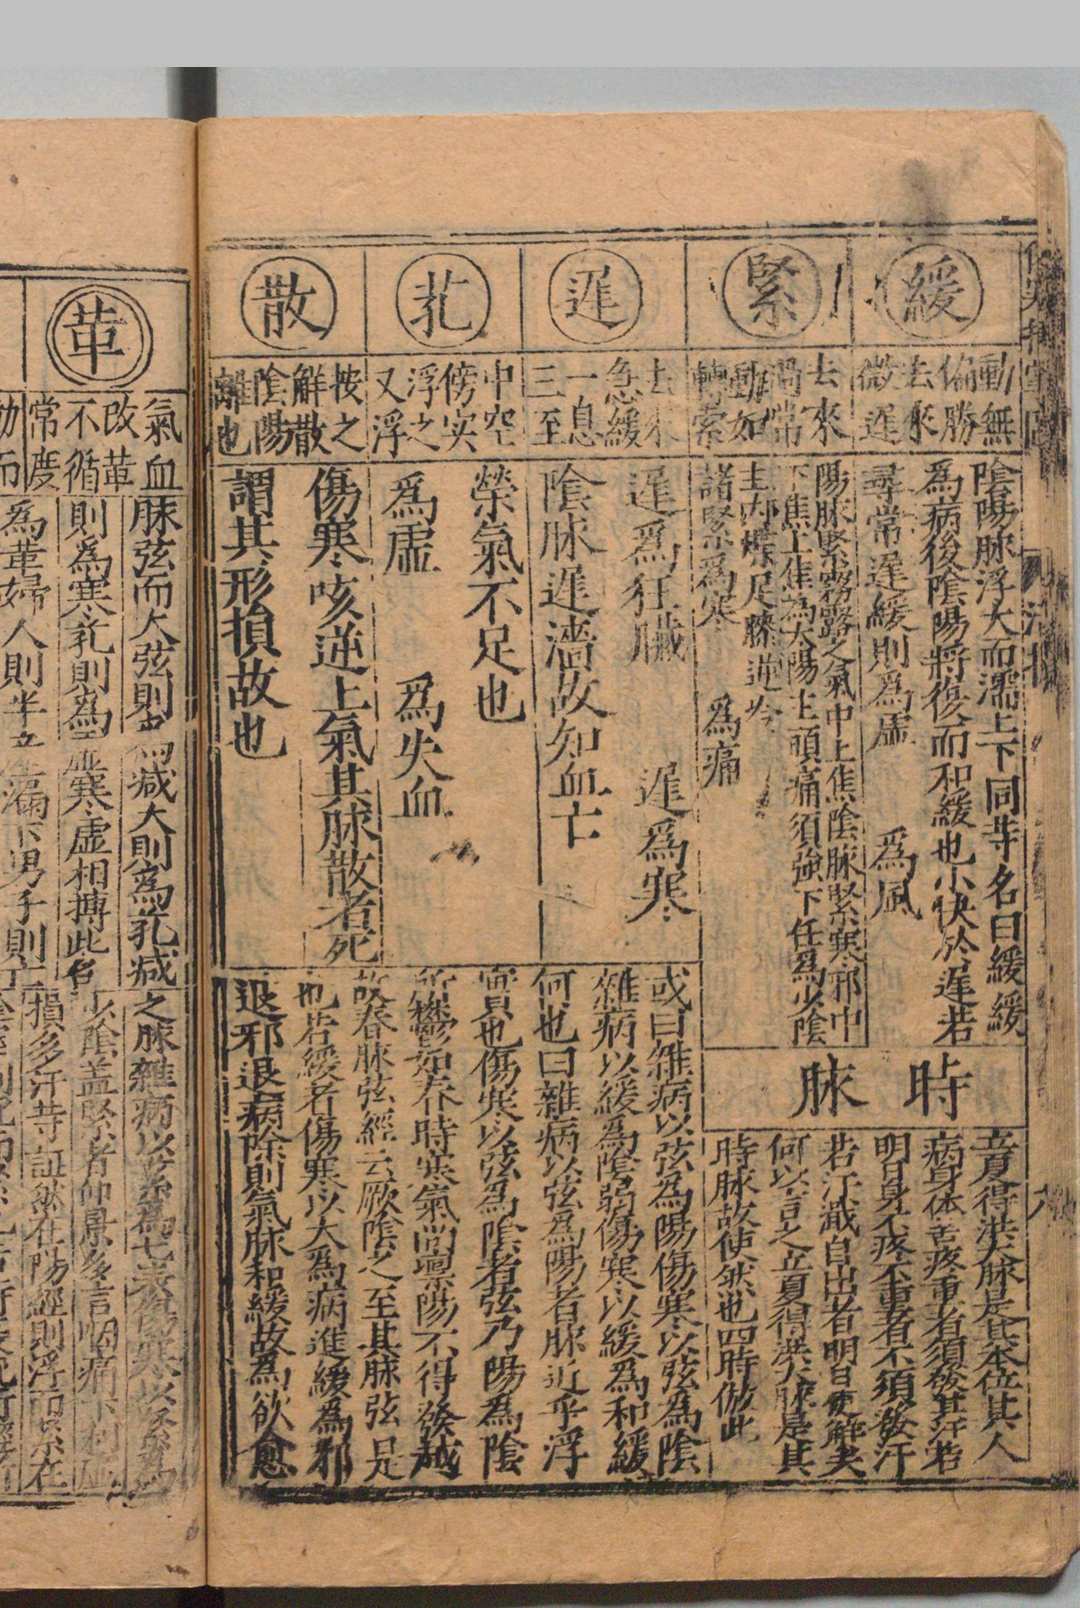 緩
動無
偏勝
去來
微遲
陰陽脉浮大而濡上下同等名曰緩緩
為病後陰陽將復而和緩也小快於遲若
尋常遲緩則為虛 為風
緊
去來
動如
轉索
陽脉緊霧露之氣中上焦陰脉緊寒邪中
下焦上焦為太陽主頭痛須強下任為少陰
主足膝逆冷
諸緊為寒 為痛
時脉
立夏得洪大脉是其本位其人
病身体苦疼重者須發其汗若
明日身不疼不重者不須發汗
若汗濈自出者明日便解矣
何以言之立夏得洪大脉是其
時脉故使然也四時倣此
遲
去來
急緩
一息
三至
遲為狂臟 遲為寒
陰脉遲濇故知血亡
芤
中空
傍实
浮之
又浮
榮氣不足也
為虛 為失血
散
按之
解散
陰陽
離也
傷寒咳逆上氣其脉散者死
謂其形損故也
或曰雜病以弦為陽傷寒以弦為陰
雜病以緩為陰弱傷寒以緩為和緩
何也曰雜病以弦為陽者脉近乎浮
實也傷寒以弦為陰者弦乃陽為陰
所鬱如春時寒氣尚禀陽不得發越
故春脉弦經云厥陰之至其脉弦是
也若緩者傷寒以大為病進緩為邪
退邪退病除則氣脉和緩故為欲愈
革
氣血
改革
不循
常度
脉弦而大弦則為减大則為芤减
則為寒芤則為虛寒虛相搏此名
為革婦人則半產漏下男子則
之脉雜病以緊為七表傷寒以緊為
少陰盖緊者仲景多言咽痛下利
損多汗等証然在陽經則浮而緊在